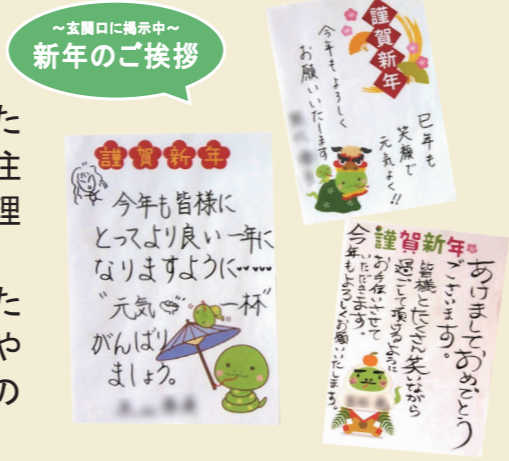 ～玄関口に掲示中～
新年のご挨拶
た
住
理
た
や
の
謹賀新年
今年も皆様に
とってより良い一年に
なりますように
〝元気一杯〟
がんばり
ましょう。
謹賀新年
巳年も
笑顔で
元気よく!!
今年もよろしく
お願いいたします
謹賀新年
あけましておめでとう
ございます。
皆様とたくさん笑いながら
過ごして頂けるように
お手伝いさせて
いただきます。
今年もよろしくお願いいたします。